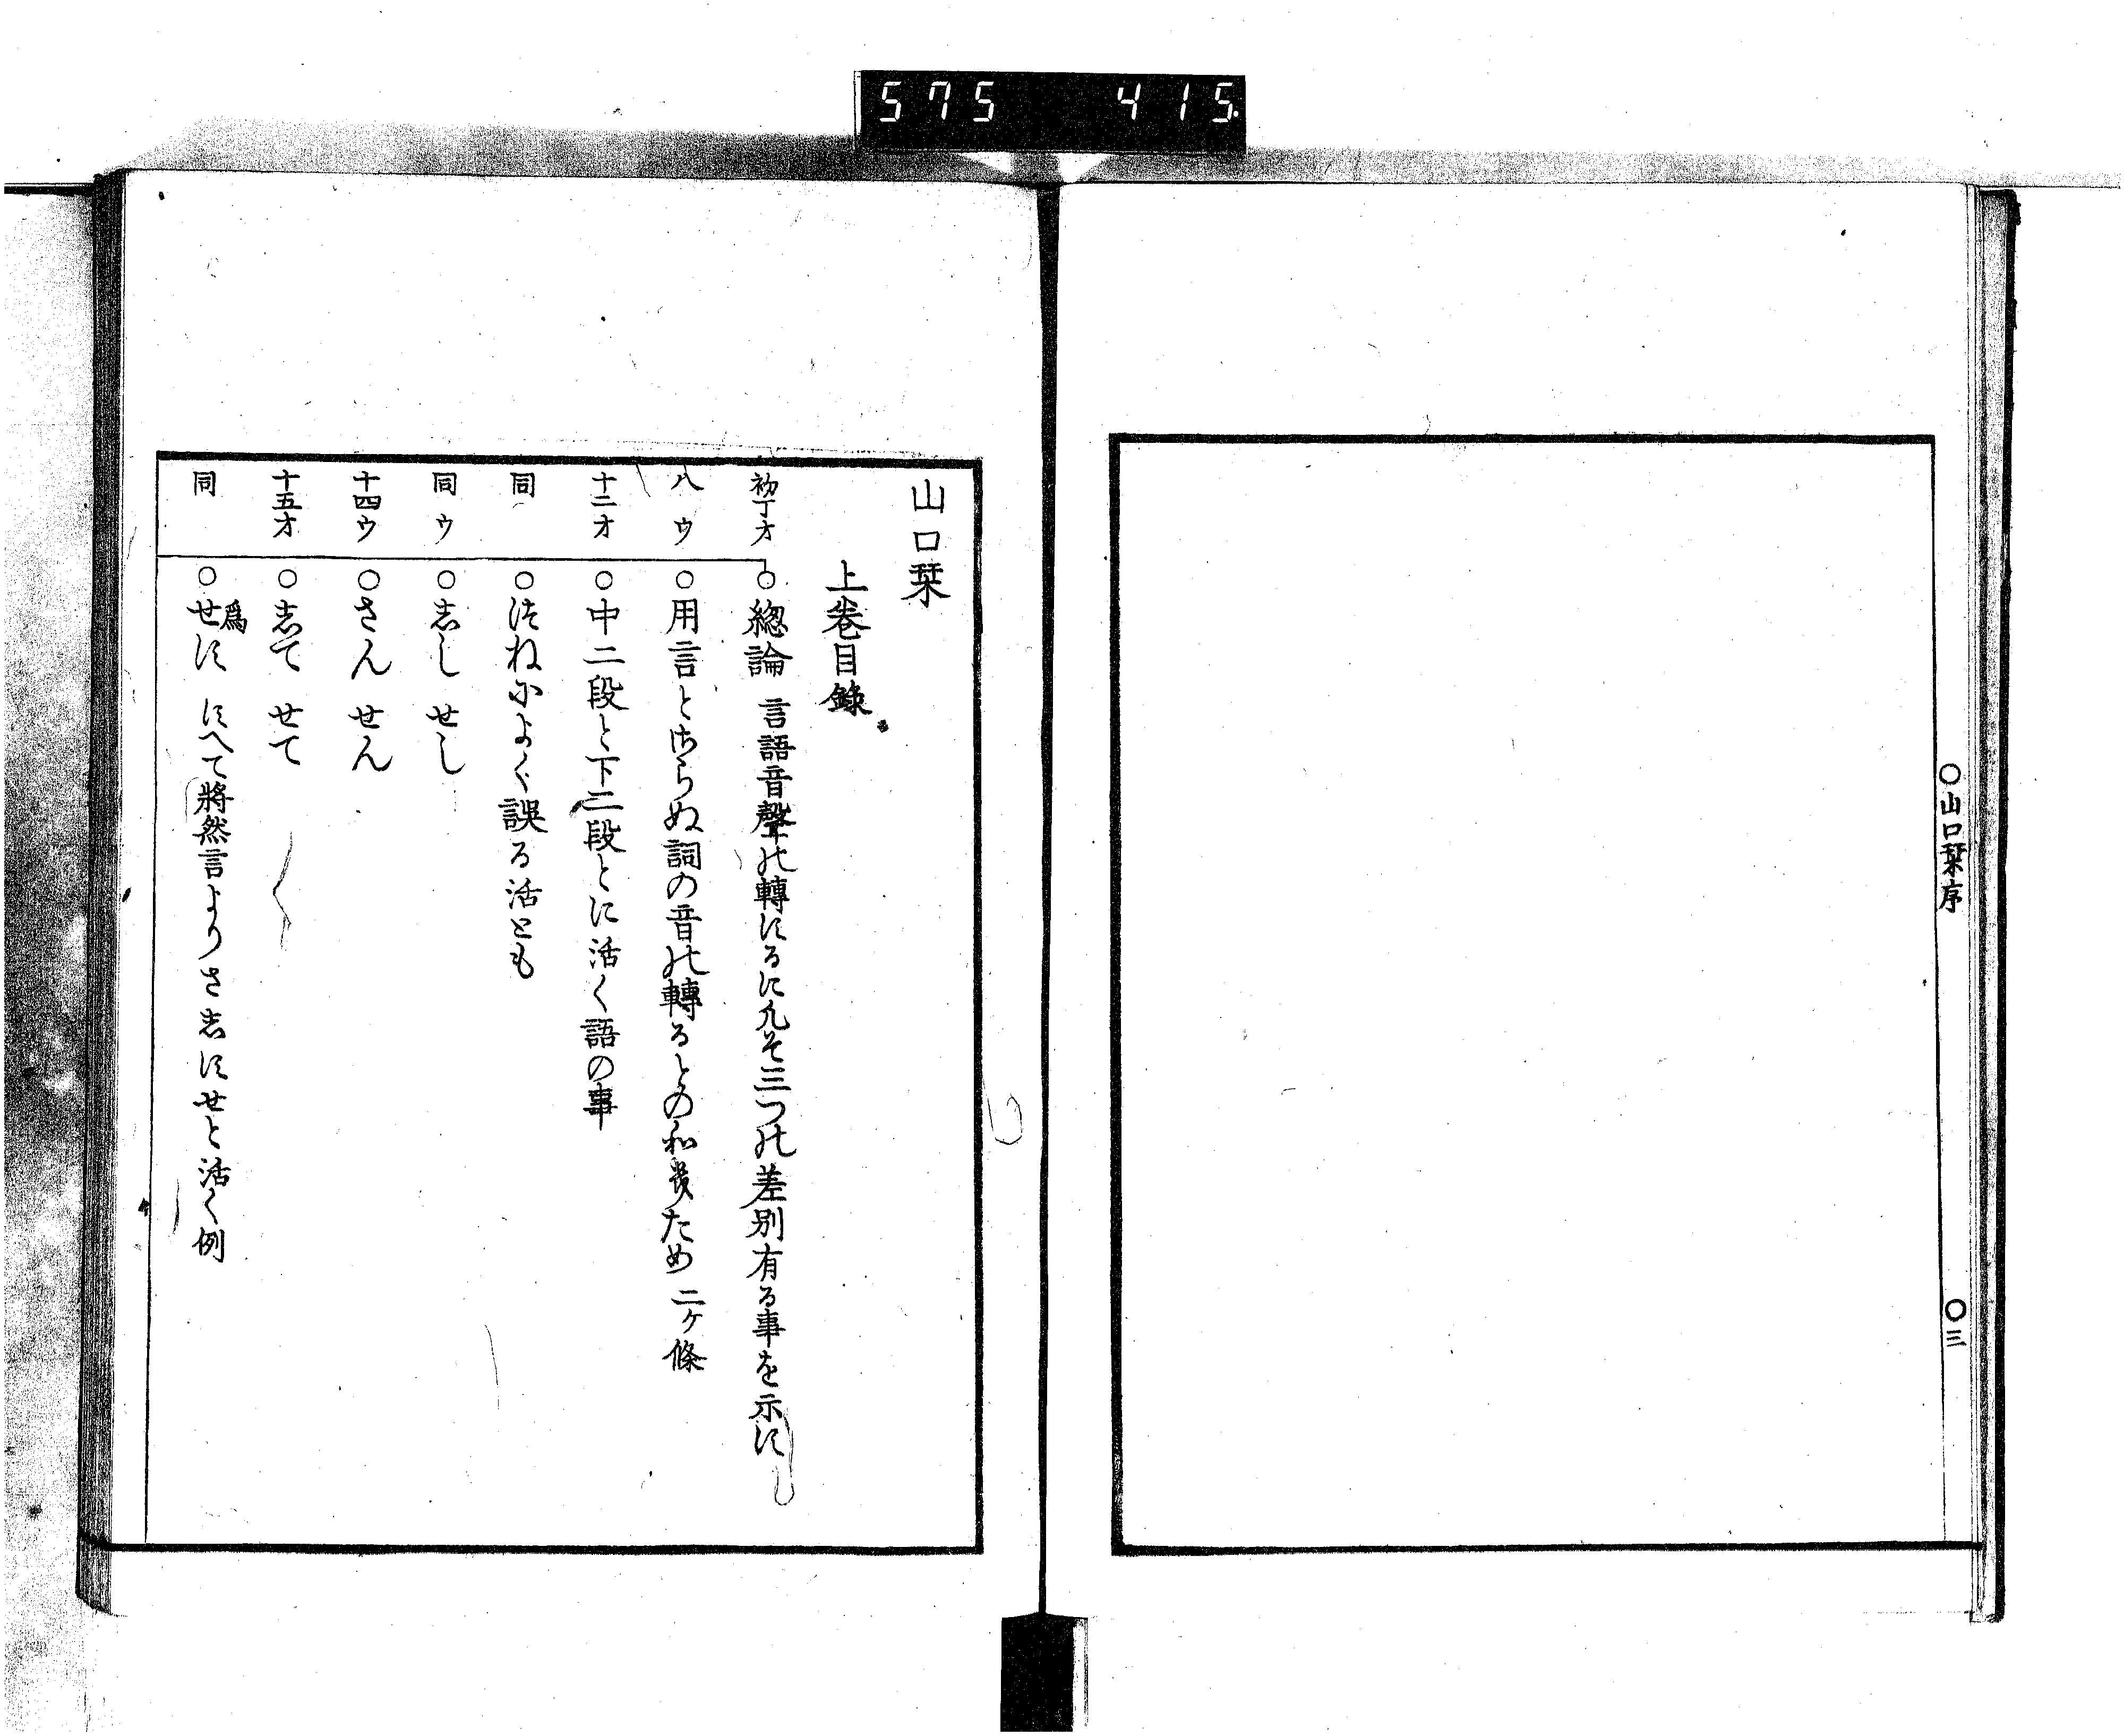 575 415
○山口栞序 ○三
山口栞
上巻目録
初丁オ ○總論 言語音聲の轉にるに凡そ三つの差別有る事を示す
八ウ ○用言とはらぬ詞の音の轉るとの和 ため 二ケ條
十二オ ○中二段と下二段とに活く語の事
同 ○つねによく誤る活とも
同ウ ○志し せし
十四ウ ○さん せん
十五オ ○志て せて
同 ○爲せす すへて將然言よりさ志すせと活く例